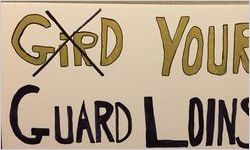 GIRD YOUR
GUARD LOINS